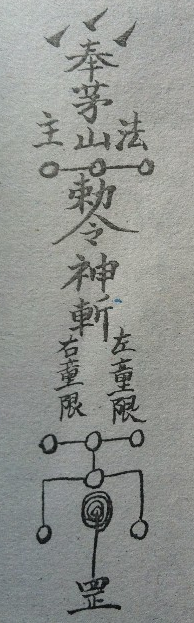 奉茅山
主法
勅令
神斬
左童限
右童限
罡